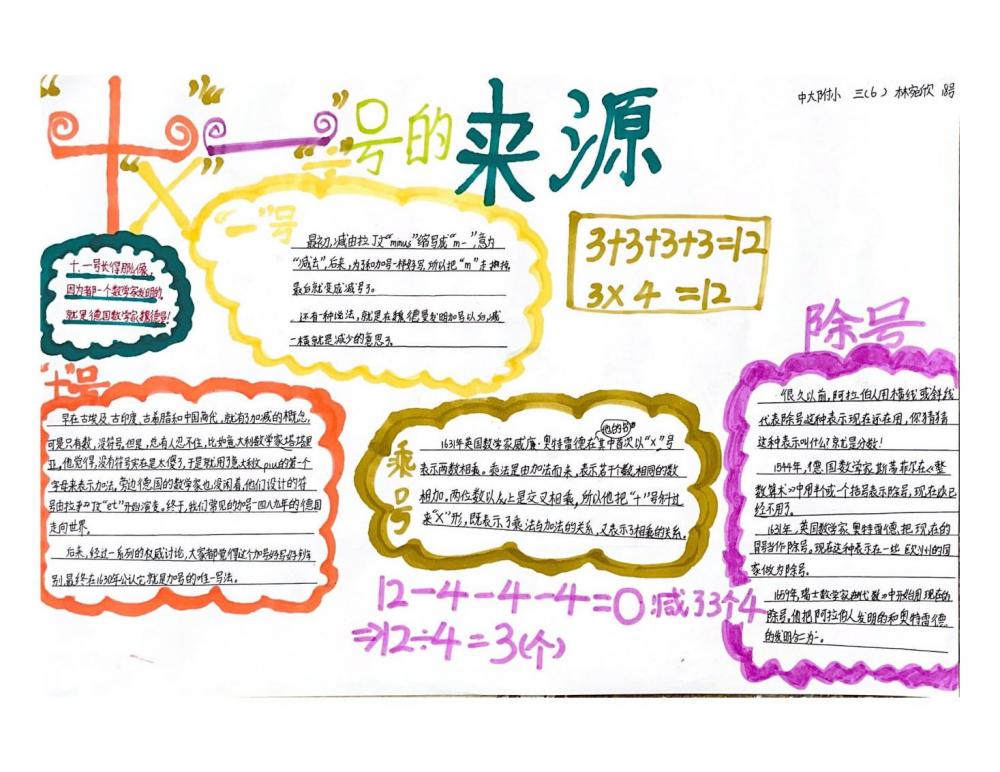 “+”“-”“×”“÷”号的来源
中大附小 三(6) 林宛欣 18号
十、一号长得那么像，
因为都一个数学家发明的，
就是德国数学家魏德曼!
“一”号
最初，减由拉丁文“minus”缩写成“m-”，意为
“减法”，后来，为了和加号一样好写，所以把“m”
最后就变成减号了。
还有一种说法，就是在魏德曼发明加号以后，减
一横就是减少的意思了。
3+3+3+3=12
3×4=12
“十”号
早在古埃及、古印度、古希腊和中国商代，就有了加减的概念，
可是只有数，没符号。但是，总有人忍不住，比如意大利数学家塔塔里
亚，他觉得，没有符号实在是太傻了，于是就用了意大利文piu的第一个
字母来表示加法。旁边德国的数学家也没闲着，他们设计的符
号由拉丁文“et”开始演变。终于，我们常见的加号一四八九年的德国
走向世界。
后来，经过一系列的权威讨论，大家都觉得这个加号好写好
别，最终在1630年公认它就是加号的唯一写法。
乘号
(他的书)
1631年英国数学家威廉·奥特雷德在 中首次以“×”号
表示两数相乘。乘法是由加法而来，表示若干个数相同的数
相加。两位数以上是交叉相乘，所以他把“十”号斜过
来“×”形，既表示了乘法与加法的关系，又表示了相乘的关系。
12-4-4-4=0:减了3个4
⇒12÷4=3(个)
除号
很久以前，阿拉伯人用横线或斜线
代表除号这种表示现在还在用，你猜猜
这种表示叫什么?就是分数!
1544年，德国数学家斯蒂菲尔在《整
数算术》中用半个或一个括号表示除号，现在
经不用了。
1631年，英国数学家奥特雷德把现在的
冒号当作除号。现在这种表示在一些欧洲的国
家做为除号。
1659年，瑞士数学家 《代数》中开始用现在的
除号。他把阿拉伯人发明的和奥特雷德
的发明合二为一。